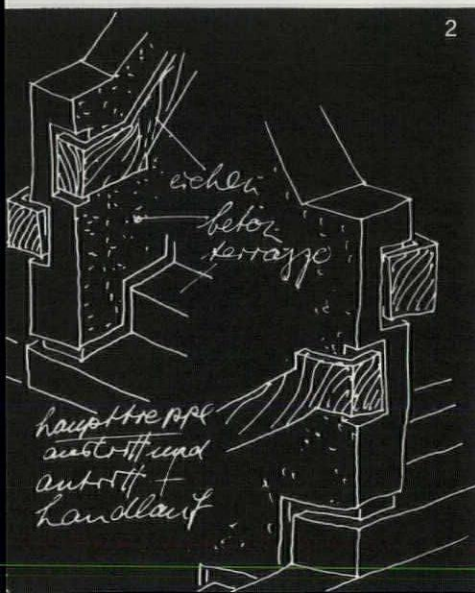 2
eichen
beton
terrazzo
haupttreppe
austritt und
antritt +
handlauf